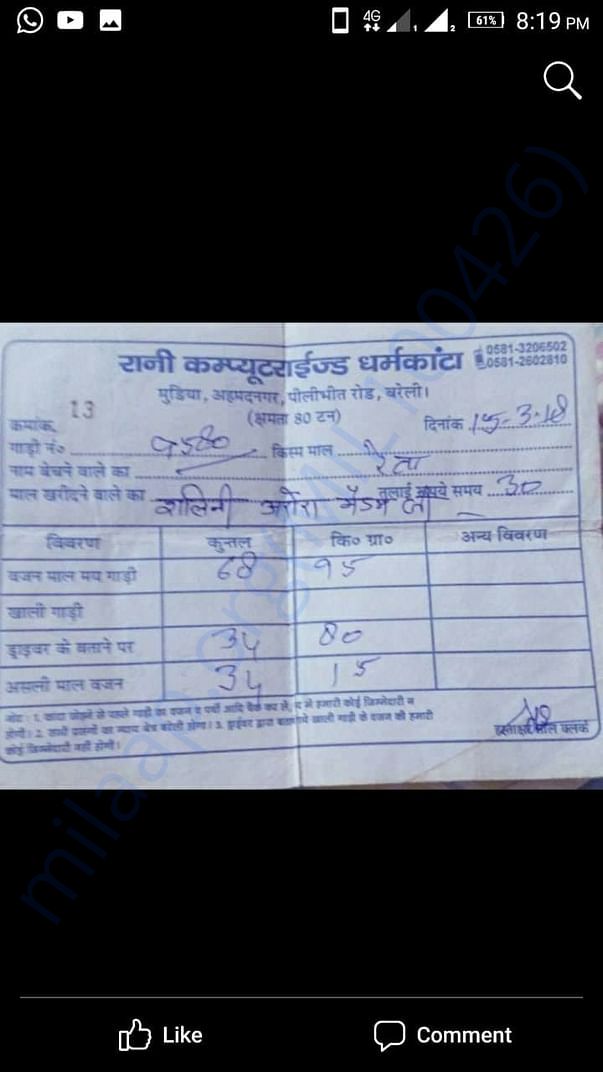 4G
1
2
61%
8:19 PM
रानी कम्प्यूटराईज्ड धर्मकांटा
0581-3206502
0581-2602810
मुडिया, अहमदनगर, पीलीभीत रोड, बरेली।
(क्षमता 80 टन)
क्रमांक 13
दिनांक 15-3-18
गाड़ी नं० 9580 किस्म माल रेता
नाम बेचने वाले का
माल खरीदने वाले का शालिनी अरोरा मैडम जी तुलाई रूपये समय 30
विवरण कुन्तल कि० ग्रा० अन्य विवरण
वजन माल मय गाड़ी 68 95
खाली गाड़ी
ड्राइवर के बताने पर 34 80
असली माल वजन 34 15
नोट : 1. कांटा छोड़ने से पहले गाड़ी का वजन व पर्ची आदि चैक कर लें, बाद में हमारी कोई जिम्मेदारी न
होगी। 2. सभी प्रसंगों का न्याय क्षेत्र बरेली होगा। 3. ड्राईवर द्वारा बताये गये खाली गाड़ी के वजन की हमारी
कोई जिम्मेदारी नहीं होगी।
हस्ताक्षर तोल क्लर्क
Like
Comment